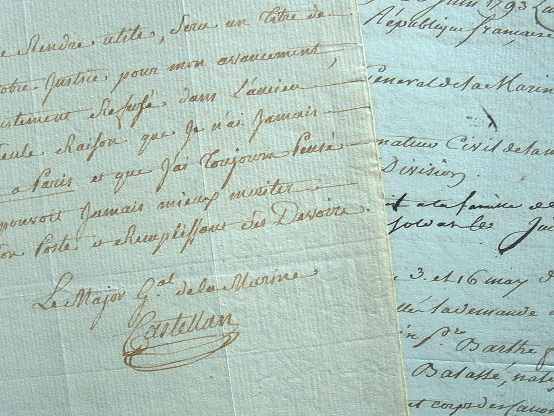 e Rendre utile, Sera un titre de
otre Justice pour mon avancement,
ustement Refusé dans L'ancien
eule Raison que Je n'ai Jamais
a Paris et que J'ai Toujours Pensé
pouvoit Jamais mieux meriter
on Poste et Remplissant Ses Devoirs.
Le Major G.al de la Marine
Castellan
1793
République française
General de la Marin
nateur Civil de la
Division
it a la famille de
soldat les
3. et 16 may d
la demande
in p.re Barthe
Balassé, nat
t corps des